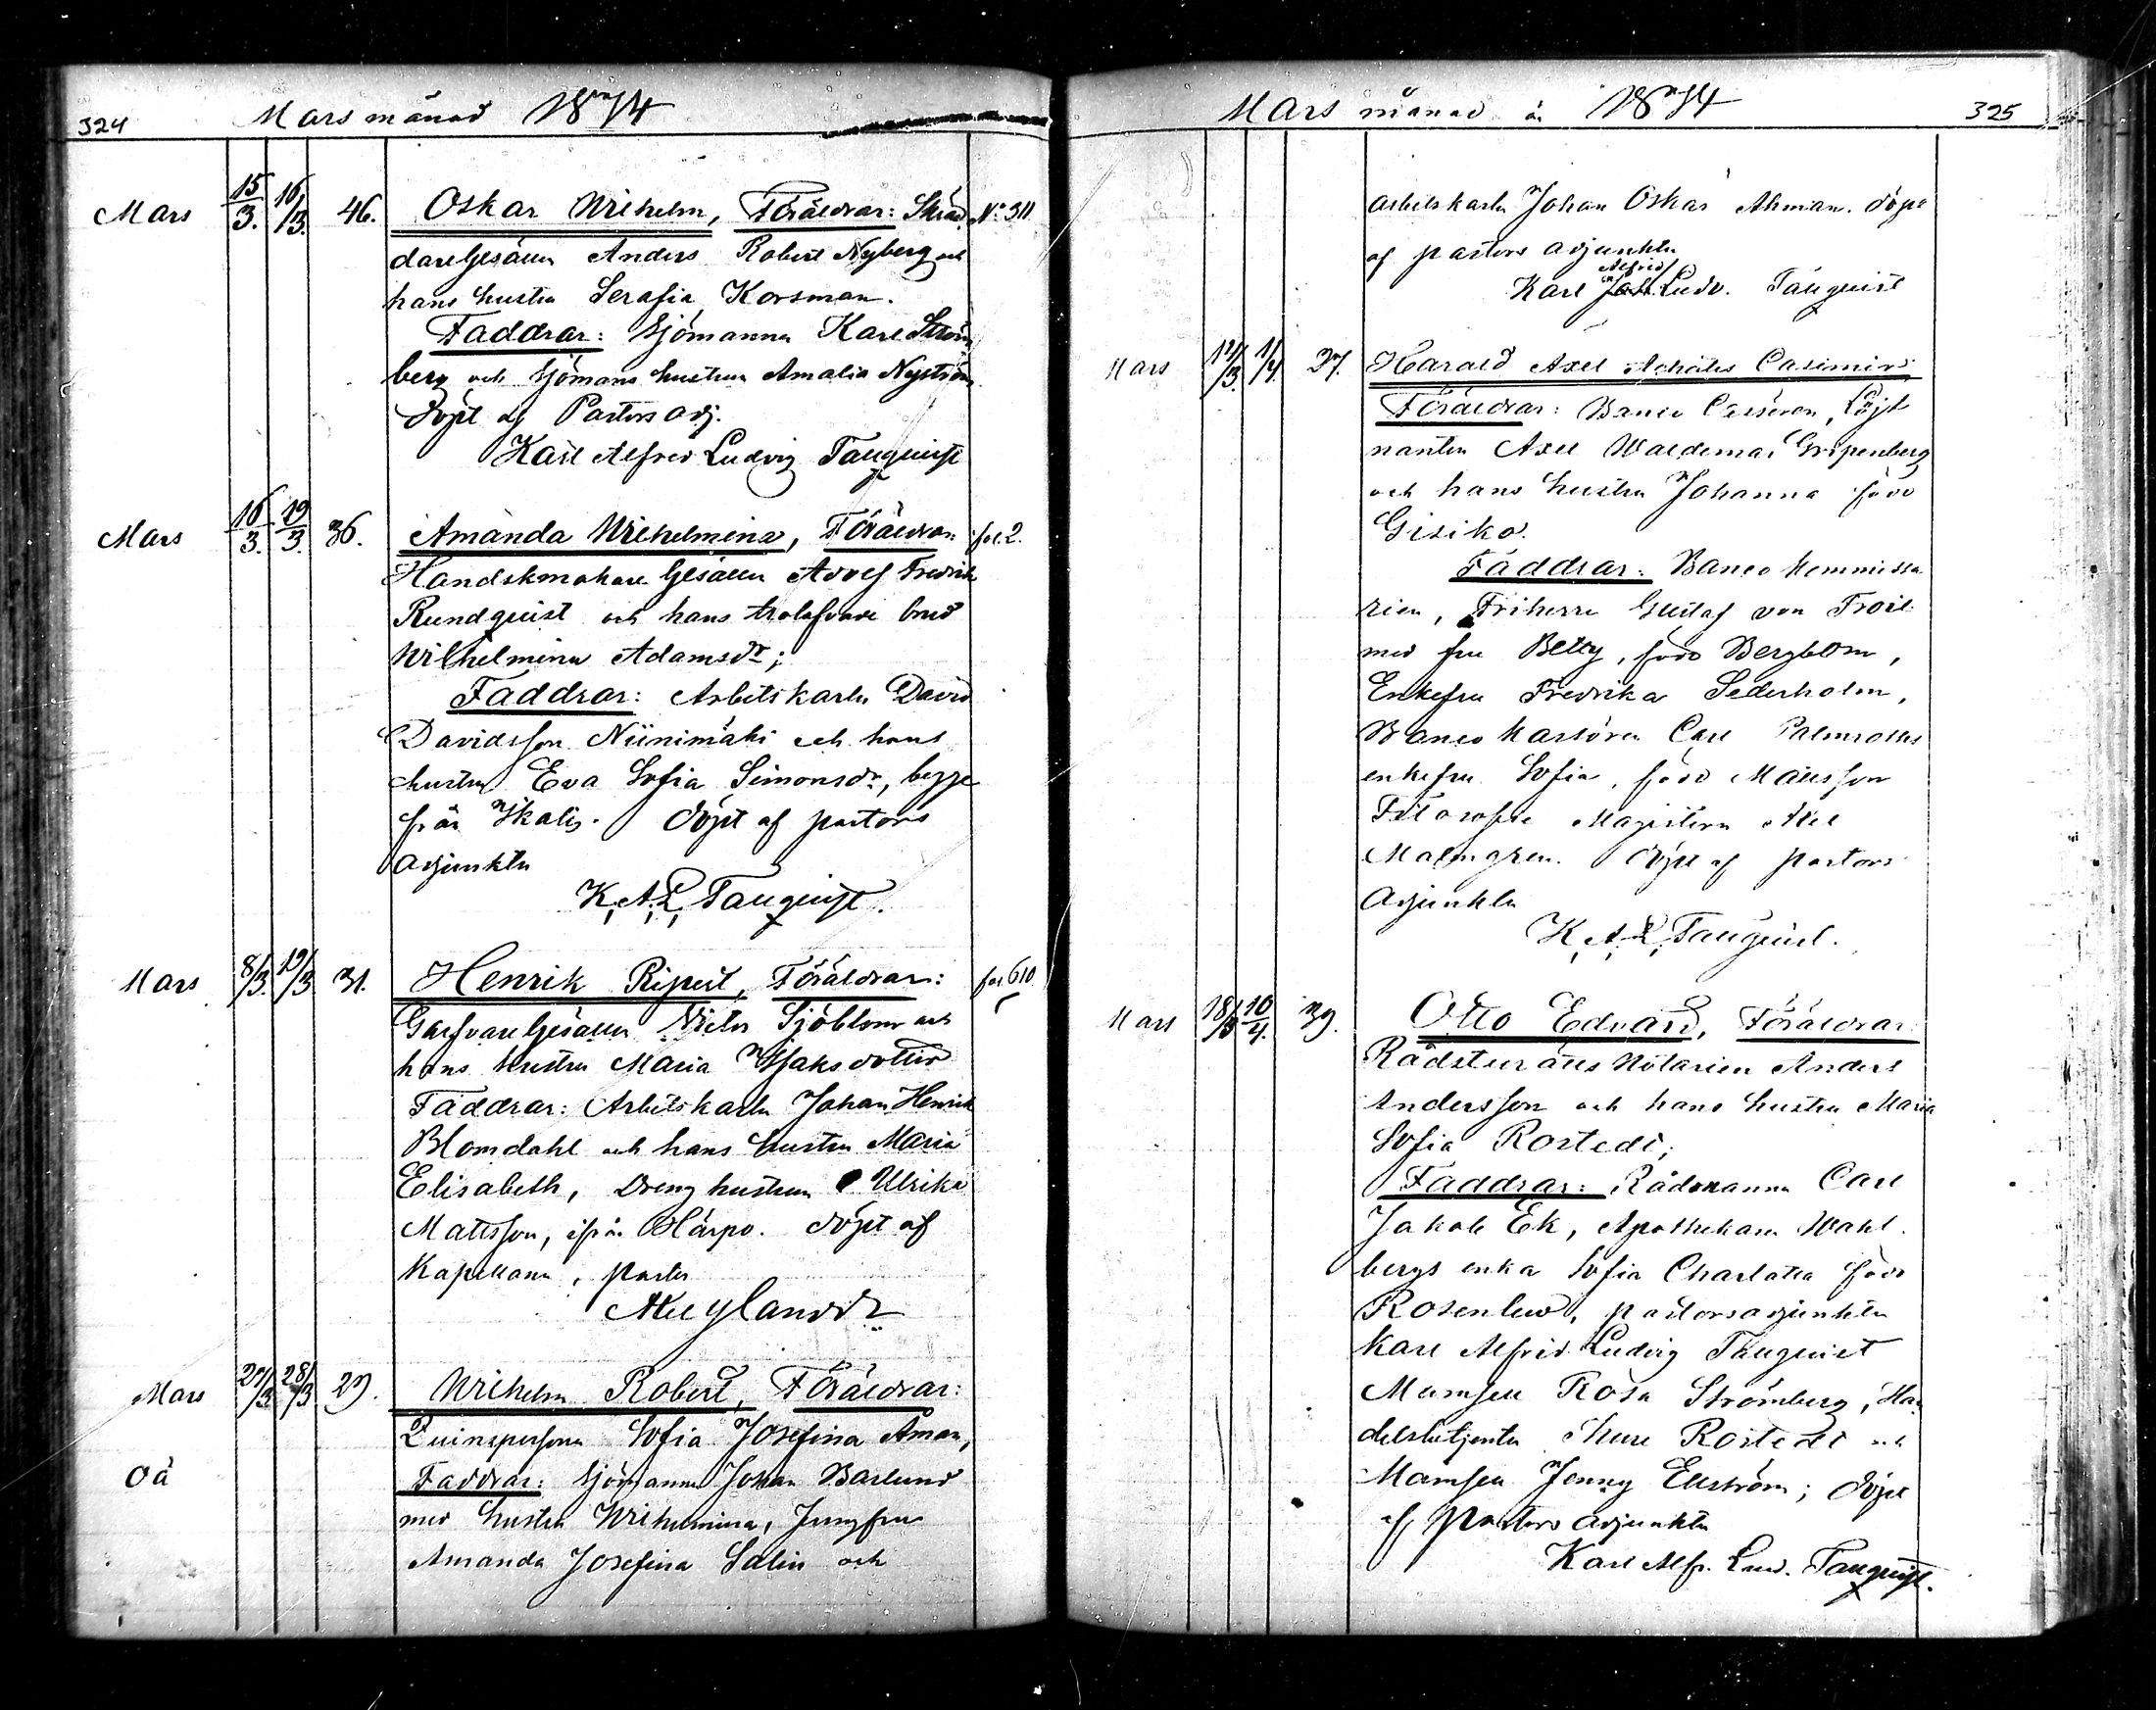 324 Mars månad 1874
Mars 15/3. 16/3. 46. Oskar Wilhelm, Föräldrar: Skräd N:o 311
daregesällen Anders Robert Nyberg och
hans hustru Serafia Korsman.
Faddrar: Sjömannen Karl Ström
berg och Sjömans hustrun Amalia Nyström
döpt af Pastors adj.
Karl Alfred Ludvig Tauquist
Mars 16/3. 19/3. 36. Amanda Wilhelmina, Föräldrar: fol 2.
Handskmakare Gesällen Adolf Fredrik
Rundquist och hans trolofvade brud
Wilhelmina Adamsdr;
Faddrar: Arbetskarln David
Davidsson Niinimäki och hans
hustru Eva Sofia Simonsdr, begge
från Ikalis. döpt af pastors
adjunkten
K. A. L. Tauquist.
Mars 8/3. 19/3. 31. Henrik Ripert, Föräldrar: fol 610
Garfvare Gesällen Victor Sjöblom och
hans hustru Maria Isaksdotter
Faddrar: Arbetskarln Johan Henrik
Blomdahl och hans hustru Maria
Elisabeth, Dreng hustrun Ulrika
Mattsson, ifrån Härpo. döpt af
Kapellanen, pastor
Mars 27/3. 28/3 29. Wilhelm Robert, Föräldrar:
Qvinspersonen Sofia Josefina Åman,
oä Faddrar: Sjömannen Johan Barlund
med hustru Wilhelmina, Jungfrun
Amanda Josefina Salin och
Mars månad år 1874 325
arbetskarln Johan Oskar Åhman. döpt
af pastors adjunkten
Alfred
Karl Ludv. Tauquist
Mars 12/3. 1/4. 37. Harald Axel Achates Casimir
Föräldrar: Banco Cassören, Löjt
nanten Axel Waldemar Gripenberg
och hans hustru Johanna född
Gisiko.
Faddrar: Banco kommissa
rien, Friherre Gustaf von Troil
med fru Betty, född Bergbom,
Enkefru Fredrika Sederholm,
Banco Kassören Carl Palmroths
enkefru Sofia, född Mattsson
Filosofie Magistern Axel
Malmgren. döpt af pastors
adjunkten
K. A. L. Tauquist.
Mars 18/3 10/4. 39. Otto Edvard, Föräldrar
Rådsturätts Notarien Anders
Andersson och hans hustru Maria
Sofia Rostedt;
Faddrar: Rådmannen Carl
Jakob Ek, Apothekaren Wahl
bergs enka Sofia Charlotta född
Rosenlew, pastorsadjunkten
Karl Alfred Ludvig Tauquist
Mamsell Rosa Strömberg, Han
delsbetjenten Thure Rostedt och
Mamsell Jenny Ekström; döpt
af Pastors adjunkten
Karl Alfr. Ludv. Tauquist.